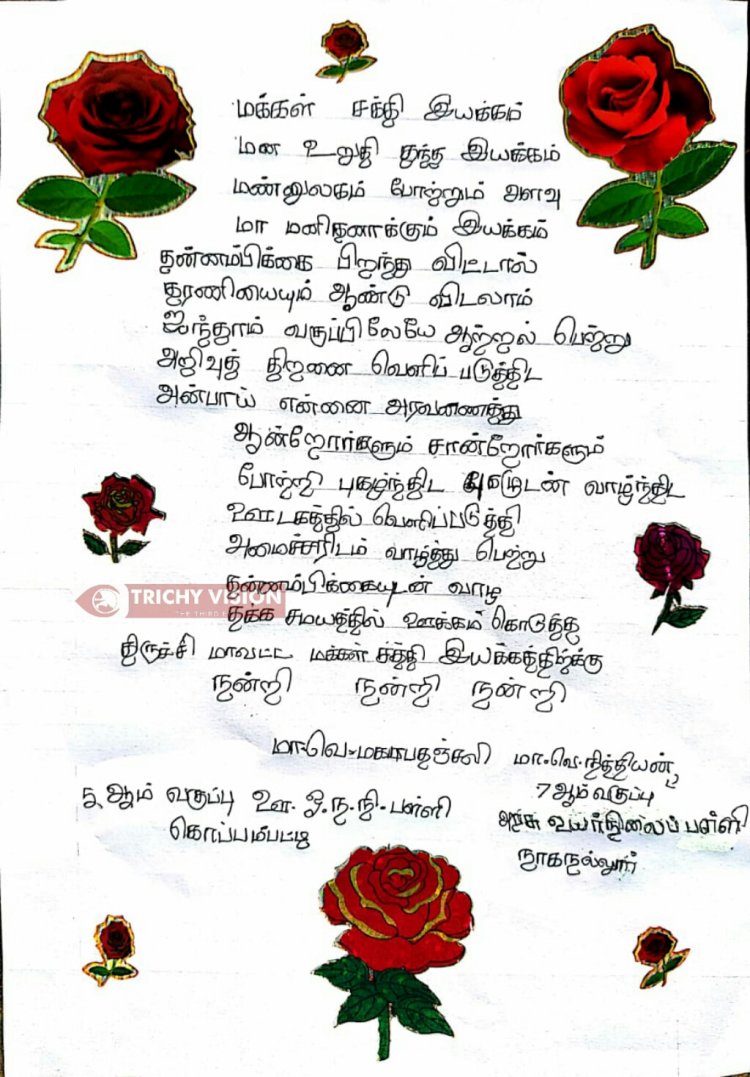 மக்கள் சக்தி இயக்கம்
மன உறுதி தந்த இயக்கம்
மண்ணுலகம் போற்றும் அளவு
மா மனிதனாக்கும் இயக்கம்
தன்னம்பிக்கை பிறந்து விட்டால்
தரணியையும் ஆண்டு விடலாம்
ஐந்தாம் வகுப்பிலேயே ஆற்றல் பெற்று
அறிவுத் திறனை வெளிப் படுத்திட
அன்பாய் என்னை அரவணைத்து
ஆன்றோர்களும் சான்றோர்களும்
போற்றி புகழ்ந்திட புகழுடன் வாழ்ந்திட
ஊடகத்தில் வெளிப்படுத்தி
அமைச்சரிடம் வாழ்த்து பெற்று
தன்னம்பிக்கையுடன் வாழ
TRICHY VISION
தக்க சமயத்தில் ஊக்கம் கொடுத்த
திருச்சி மாவட்ட மக்கள் சக்தி இயக்கத்திற்கு
நன்றி நன்றி நன்றி
மா.வெ.மகாபதஞ்சலி மா.வெ.நித்தியன்
5 ஆம் வகுப்பு ஊ. ஓ.ந.நி.பள்ளி 7ஆம் வகுப்பு
கொப்பம்பட்டி அரசு உயர்நிலைப் பள்ளி
நாகநல்லூர்